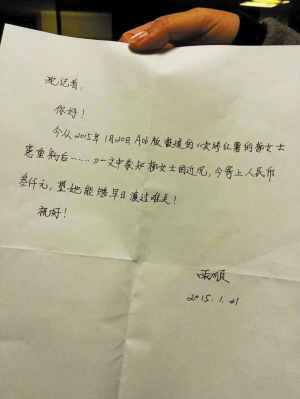 沈记者:
你好!
今从2015年1月20日A06版报道的《卖烤红薯的柳女士
患重病后……》一文中获知柳女士的近况,今寄上人民币
叁仟元,望她能够早日渡过难关!
祝好!
顺
2015.1.21